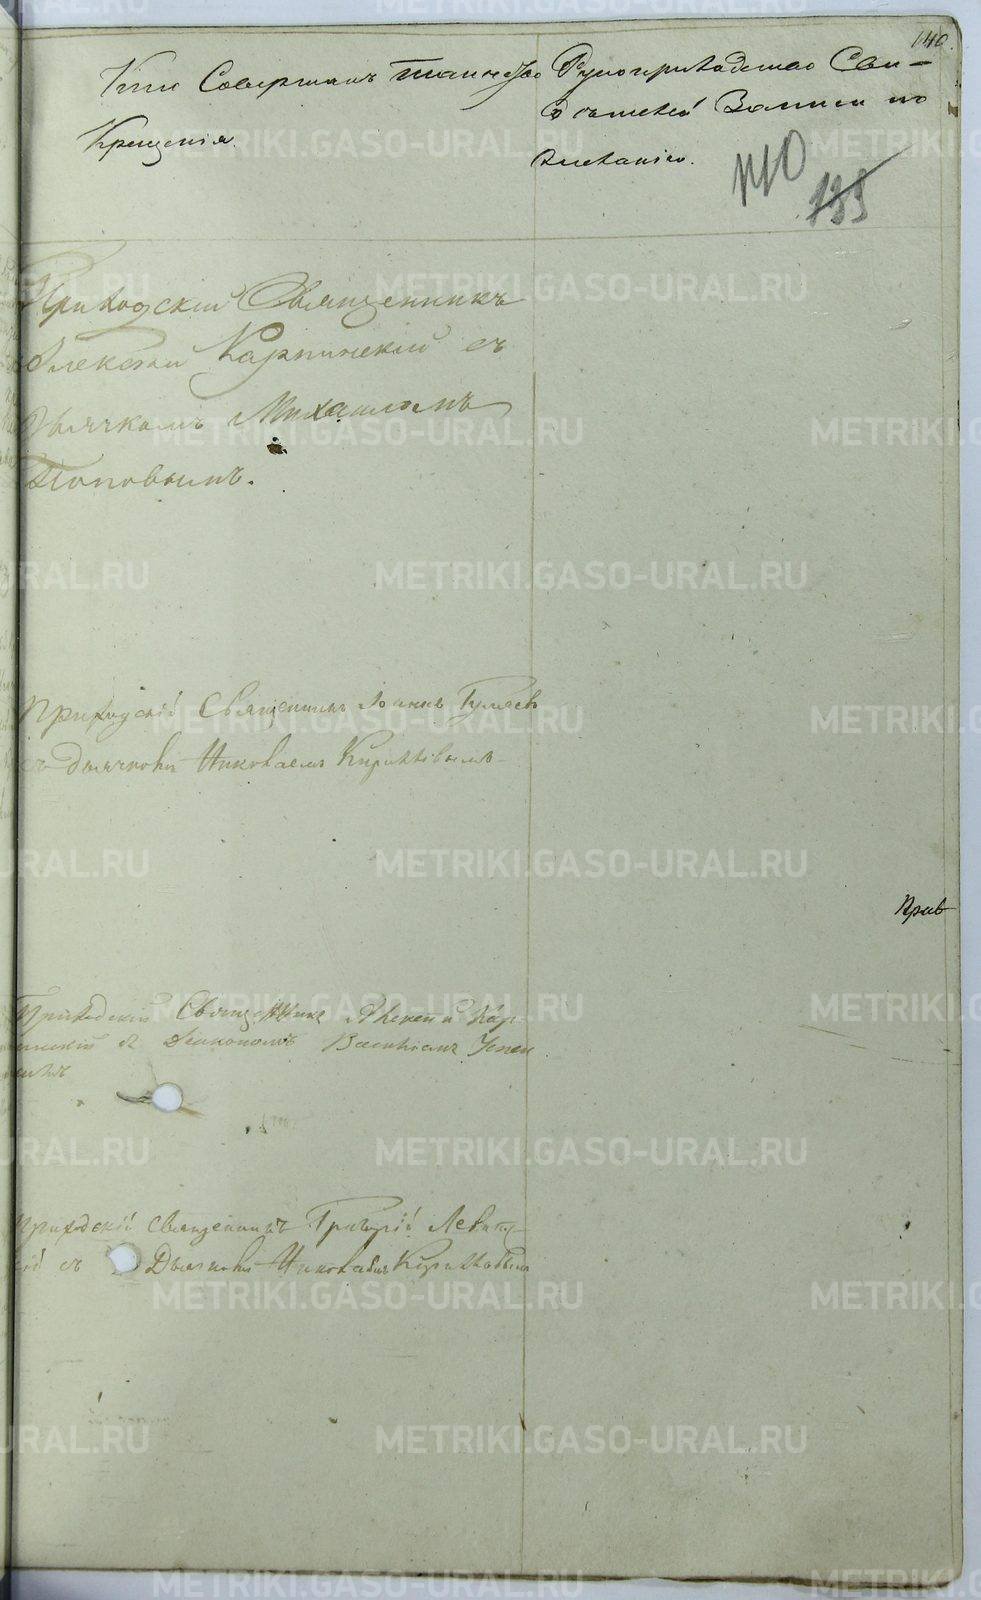 140.
Кто Совершалъ таинство
Крещенія.
Рукоприкладство Сви-
дѣтелей Записи по
желанію.
140
139
Приходскій Священникъ
Алексѣй Карпинскій съ
Дьячкомъ Михаиломъ
Поповымъ.
Приходскій Священникъ Іоаннъ Гуляевъ
съ дьячкомъ Николаемъ Кирилловымъ
Прав
Приходскій Священникъ Алексѣй Кар-
пинскій съ Діакономъ Василіемъ Успен
скимъ
Приходскій Священникъ Григорій Левиц-
кій съ Дьячкомъ Николаемъ Кирилловымъ
METRIKI.GASO-URAL.RU